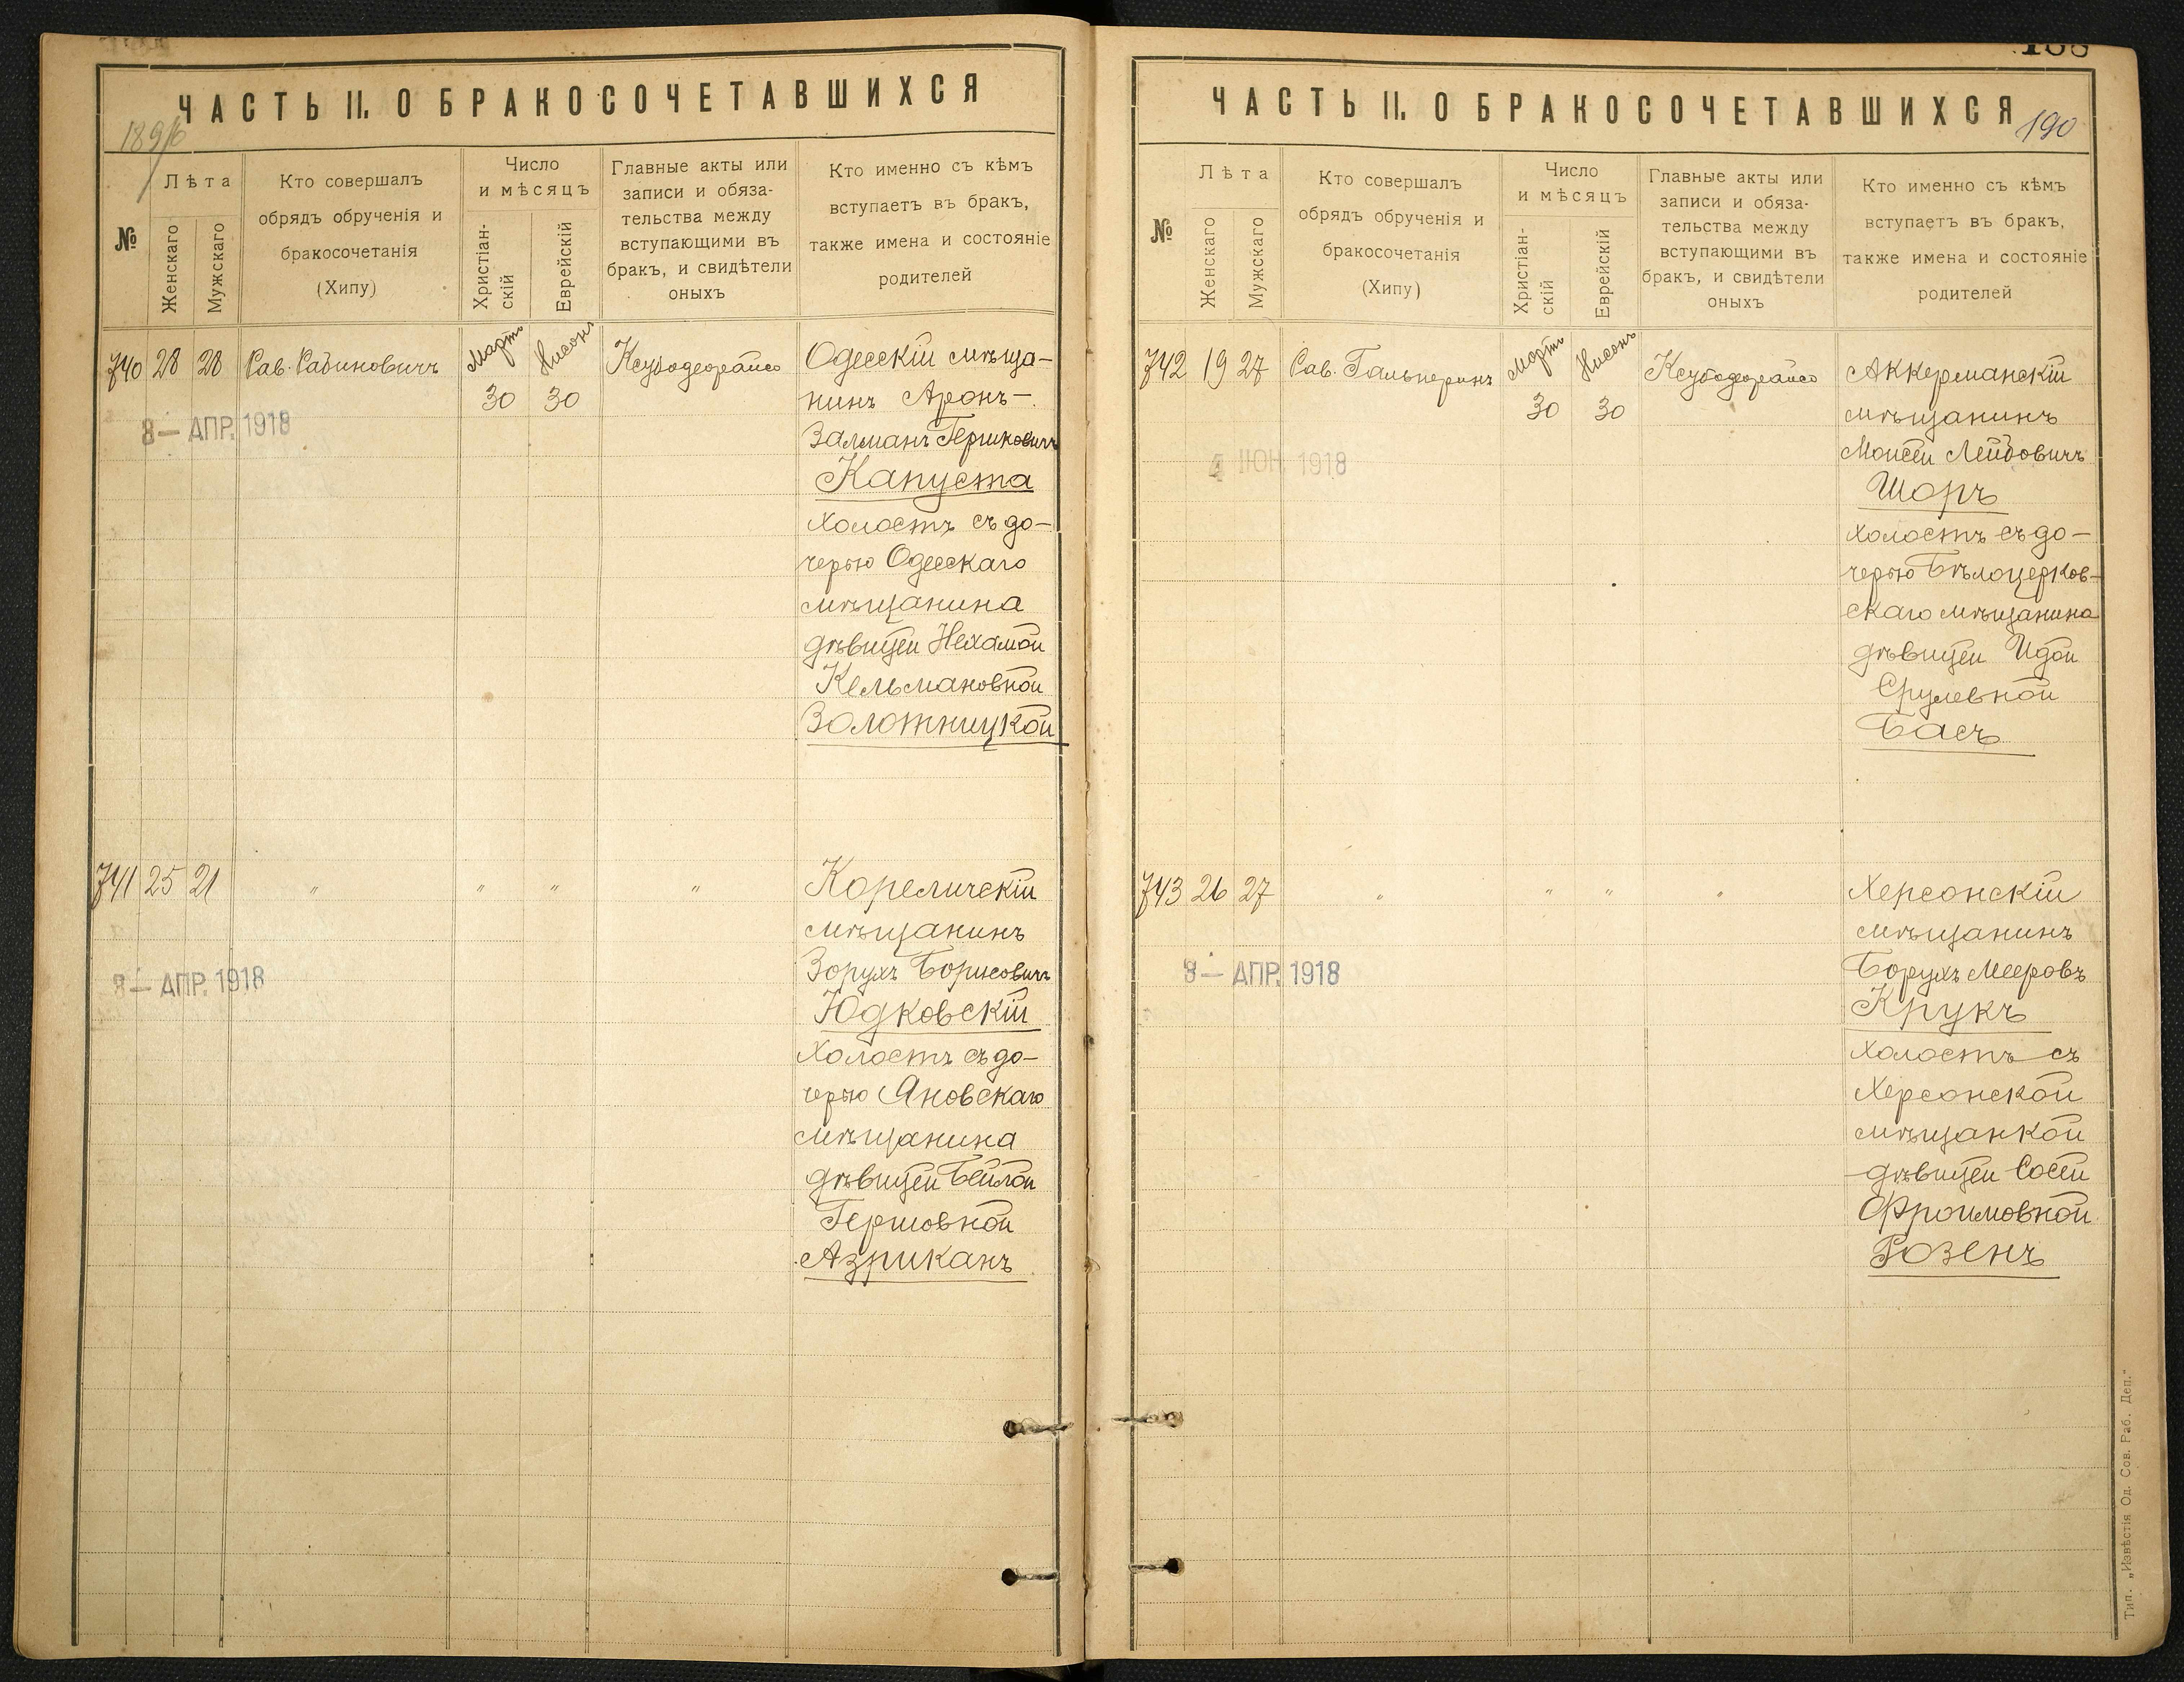 ЧАСТЬ II. О БРАКОСОЧЕТАВШИХСЯ
№
Лѣта
Женскаго
Мужскаго
Кто совершалъ
обрядъ обрученія и
бракосочетанія
(Хипу)
Число
и мѣсяцъ
Христіан-
скій
Еврейскій
Главные акты или
записи и обяза-
тельства между
вступающими въ
бракъ, и свидѣтели
оныхъ
Кто именно съ кѣмъ
вступаетъ въ бракъ,
также имена и состояніе
родителей
740 28 28 Рав. Рабиновичъ
Мартъ
30
Нисонъ
30
Ксубодеорайсо
Одесскій мѣща-
нинъ Аронъ-
Залманъ Гершковичъ
Капуста
холостъ съ до-
черью Одесскаго
мѣщанина
дѣвицей Нехамой
Кельмановной
Золотницкой
8— АПР. 1918
741 25 21 " " " "
Кореличскій
мѣщанинъ
Зорухъ Борисовичъ
Юдковскій
холостъ съ до-
черью Яновскаго
мѣщанина
дѣвицей Бейлой
Гершовной
Азриканъ
8— АПР. 1918
ЧАСТЬ II. О БРАКОСОЧЕТАВШИХСЯ
190
№
Лѣта
Женскаго
Мужскаго
Кто совершалъ
обрядъ обрученія и
бракосочетанія
(Хипу)
Число
и мѣсяцъ
Христіан-
скій
Еврейскій
Главные акты или
записи и обяза-
тельства между
вступающими въ
бракъ, и свидѣтели
оныхъ
Кто именно съ кѣмъ
вступаетъ въ бракъ,
также имена и состояніе
родителей
742 19 27 Рав. Гальперинъ
Мартъ
30
Нисонъ
30
Ксубодеорайсо
Аккерманскій
мѣщанинъ
Моисей Лейбовичъ
Шоръ
холостъ съ до-
черью Бѣлоцерков-
скаго мѣщанина
дѣвицей Идой
Срулевной
Басъ
4 ІЮН. 1918
743 26 27 " " " "
Херсонскій
мѣщанинъ
Борухъ Мееровъ
Крукъ
холостъ съ
Херсонской
мѣщанкой
дѣвицей Сосей
Фроимовной
Розенъ
8— АПР. 1918
Тип. „Извѣстія Од. Сов. Раб. Деп."